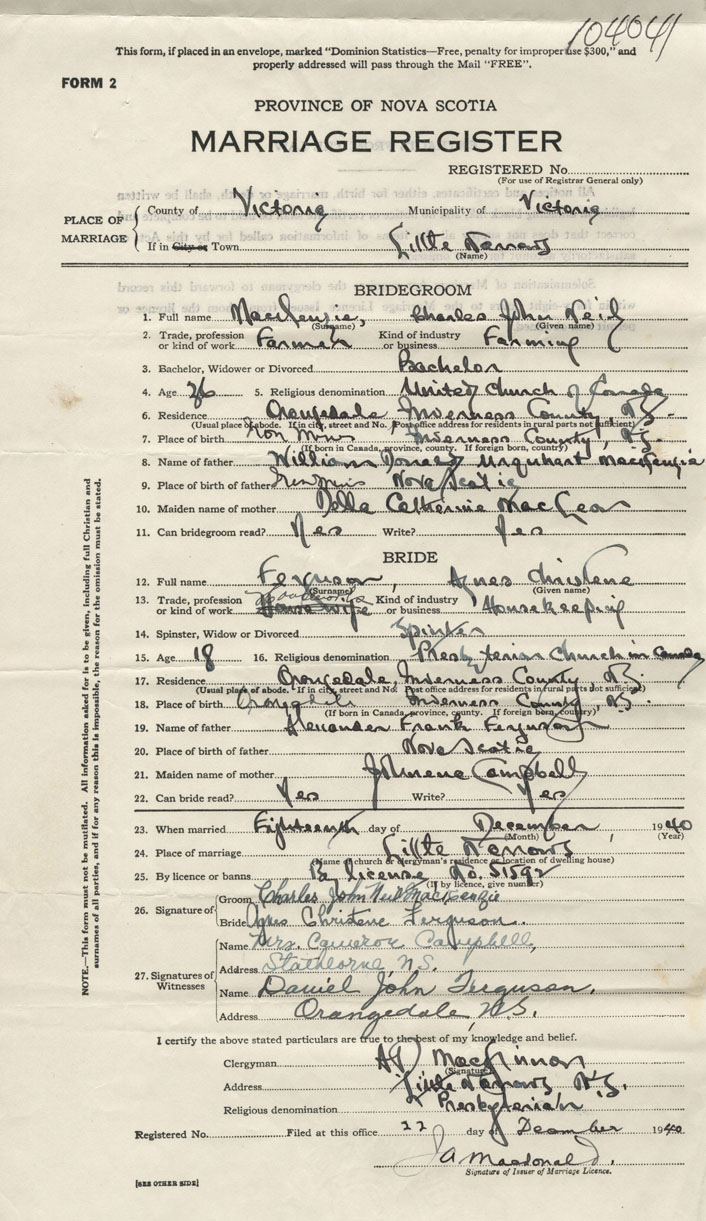 104041
This form, if placed in an envelope, marked "Dominion Statistics—Free, penalty for improper use $300," and
properly addressed will pass through the Mail "FREE".
FORM 2
PROVINCE OF NOVA SCOTIA
MARRIAGE REGISTER
REGISTERED No.
(For use of Registrar General only)
PLACE OF MARRIAGE
County of Victoria Municipality of Victoria
If in City or Town Little Narrows
(Name)
BRIDEGROOM
1. Full name MacKenzie, Charles John Neil
(Surname) (Given name)
2. Trade, profession or kind of work Farmer Kind of industry or business Farming
3. Bachelor, Widower or Divorced Bachelor
4. Age 26 5. Religious denomination United Church of Canada
6. Residence Orangedale Inverness County, N.S.
(Usual place of abode. If in city, street and No. Post office address for residents in rural parts not sufficient)
7. Place of birth Iron Mines Inverness County, N.S.
(If born in Canada, province, county. If foreign born, country)
8. Name of father William Donald Urquhart MacKenzie
9. Place of birth of father Iron Mines Nova Scotia
10. Maiden name of mother Della Catherine MacLean
11. Can bridegroom read? Yes Write? Yes
BRIDE
12. Full name Ferguson, Agnes Christene
(Surname) (Given name)
13. Trade, profession or kind of work House wife Kind of industry or business Housekeeping
14. Spinster, Widow or Divorced Spinster
15. Age 18 16. Religious denomination Presbyterian Church in Canada
17. Residence Orangedale, Inverness County, N.S.
(Usual place of abode. If in city, street and No. Post office address for residents in rural parts not sufficient)
18. Place of birth Orangedale Inverness County, N.S.
(If born in Canada, province, county. If foreign born, country)
19. Name of father Alexander Frank Ferguson
20. Place of birth of father Nova Scotia
21. Maiden name of mother Campbell
22. Can bride read? Yes Write? Yes
23. When married Eighteenth day of December 1940
(Month) (Year)
24. Place of marriage Little Narrows
(Name of church or clergyman's residence or location of dwelling house)
25. By licence or banns By license No. 51592
(If by licence, give number)
26. Signature of
Groom Charles John Neil MacKenzie
Bride Agnes Christene Ferguson.
27. Signatures of Witnesses
Name Mrs. Cameron Campbell,
Address Strathlorne, N.S.
Name Daniel John Ferguson.
Address Orangedale, N.S.
I certify the above stated particulars are true to the best of my knowledge and belief.
Clergyman A D MacKinnon
(Signature)
Address Little Narrows N.S.
Religious denomination Presbyterian
Registered No. Filed at this office 22 day of December 1940
J A Macdonald.
Signature of Issuer of Marriage Licence.
[SEE OTHER SIDE]
NOTE.—This form must not be mutilated. All information asked for is to be given, including full Christian and
surnames of all parties, and if for any reason this is impossible, the reason for the omission must be stated.